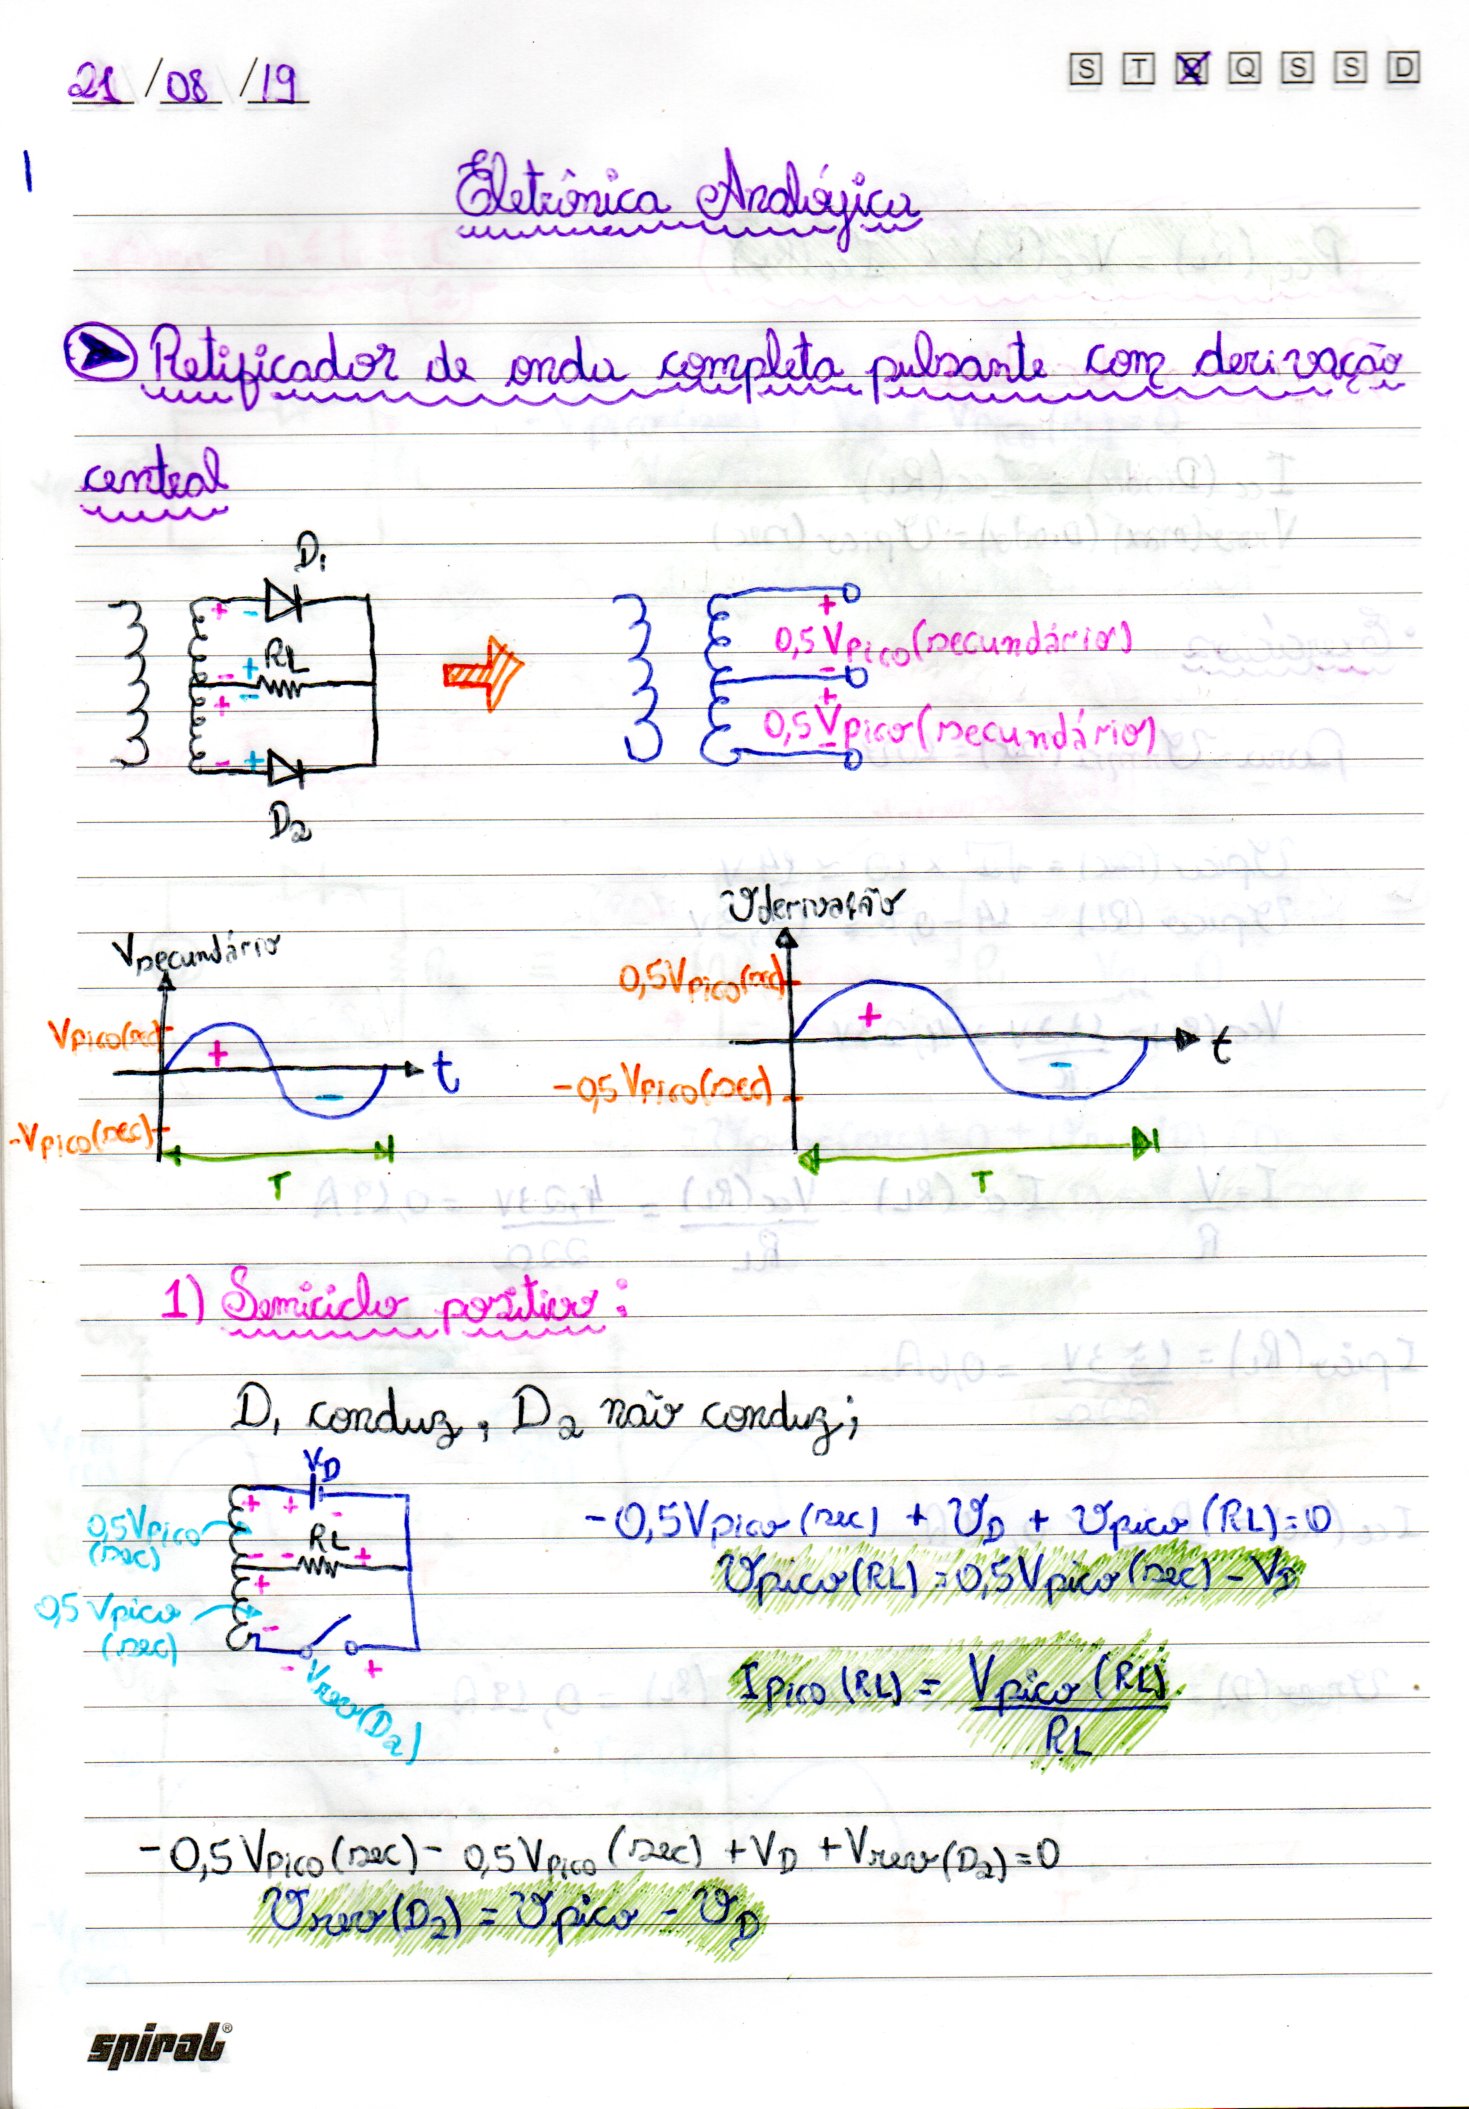 21/08/19
S T Q Q S S D
Eletrônica Analógica
Retificador de onda completa pulsante com derivação
central
D1
RL
D2
+ - + - + - - + - +
+
0,5Vpico(secundário)
-
+
0,5Vpico(secundário)
-
Vsecundário
Vpico(sec)
+
-
t
-Vpico(sec)
T
Vderivação
0,5Vpico(sec)
+
-
t
-0,5Vpico(sec)
T
1) Semiciclo positivo:
D1 conduz, D2 não conduz;
VD
0,5Vpico (sec)
RL
0,5Vpico (sec)
Vrev(D2)
-0,5Vpico(sec) + VD + Vpico(RL)=0
Vpico(RL)=0,5Vpico(sec) - VD
Ipico(RL) = Vpico(RL)
RL
-0,5Vpico(sec) - 0,5Vpico(sec) + VD + Vrev(D2)=0
Vrev(D2) = Vpico - VD
spiral®